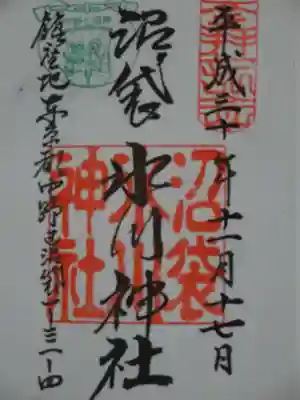 平成三十年十一月十七日
沼袋 氷川神社
鎮座地東京都中野区沼袋一ー三一ー四
沼袋
氷川
神社